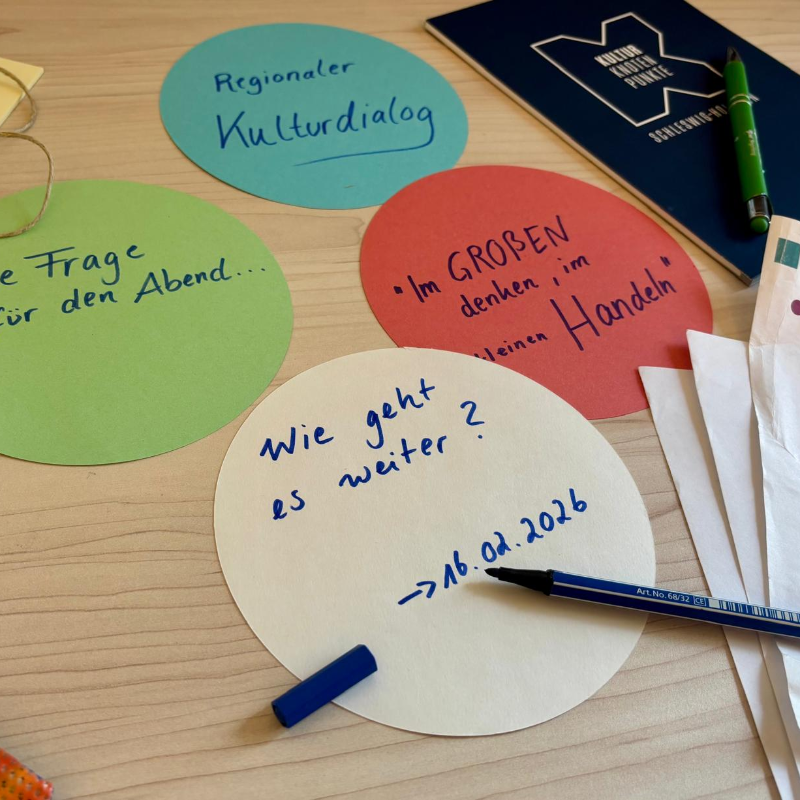 Regionaler
Kulturdialog
KULTUR
KNOTEN
PUNKTE
SCHLESWIG-HO
e Frage
für den Abend...
"Im GROßEN
denken, im
kleinen Handeln"
Wie geht
es weiter?
→16.02.2026
Art.No.68/32 CE